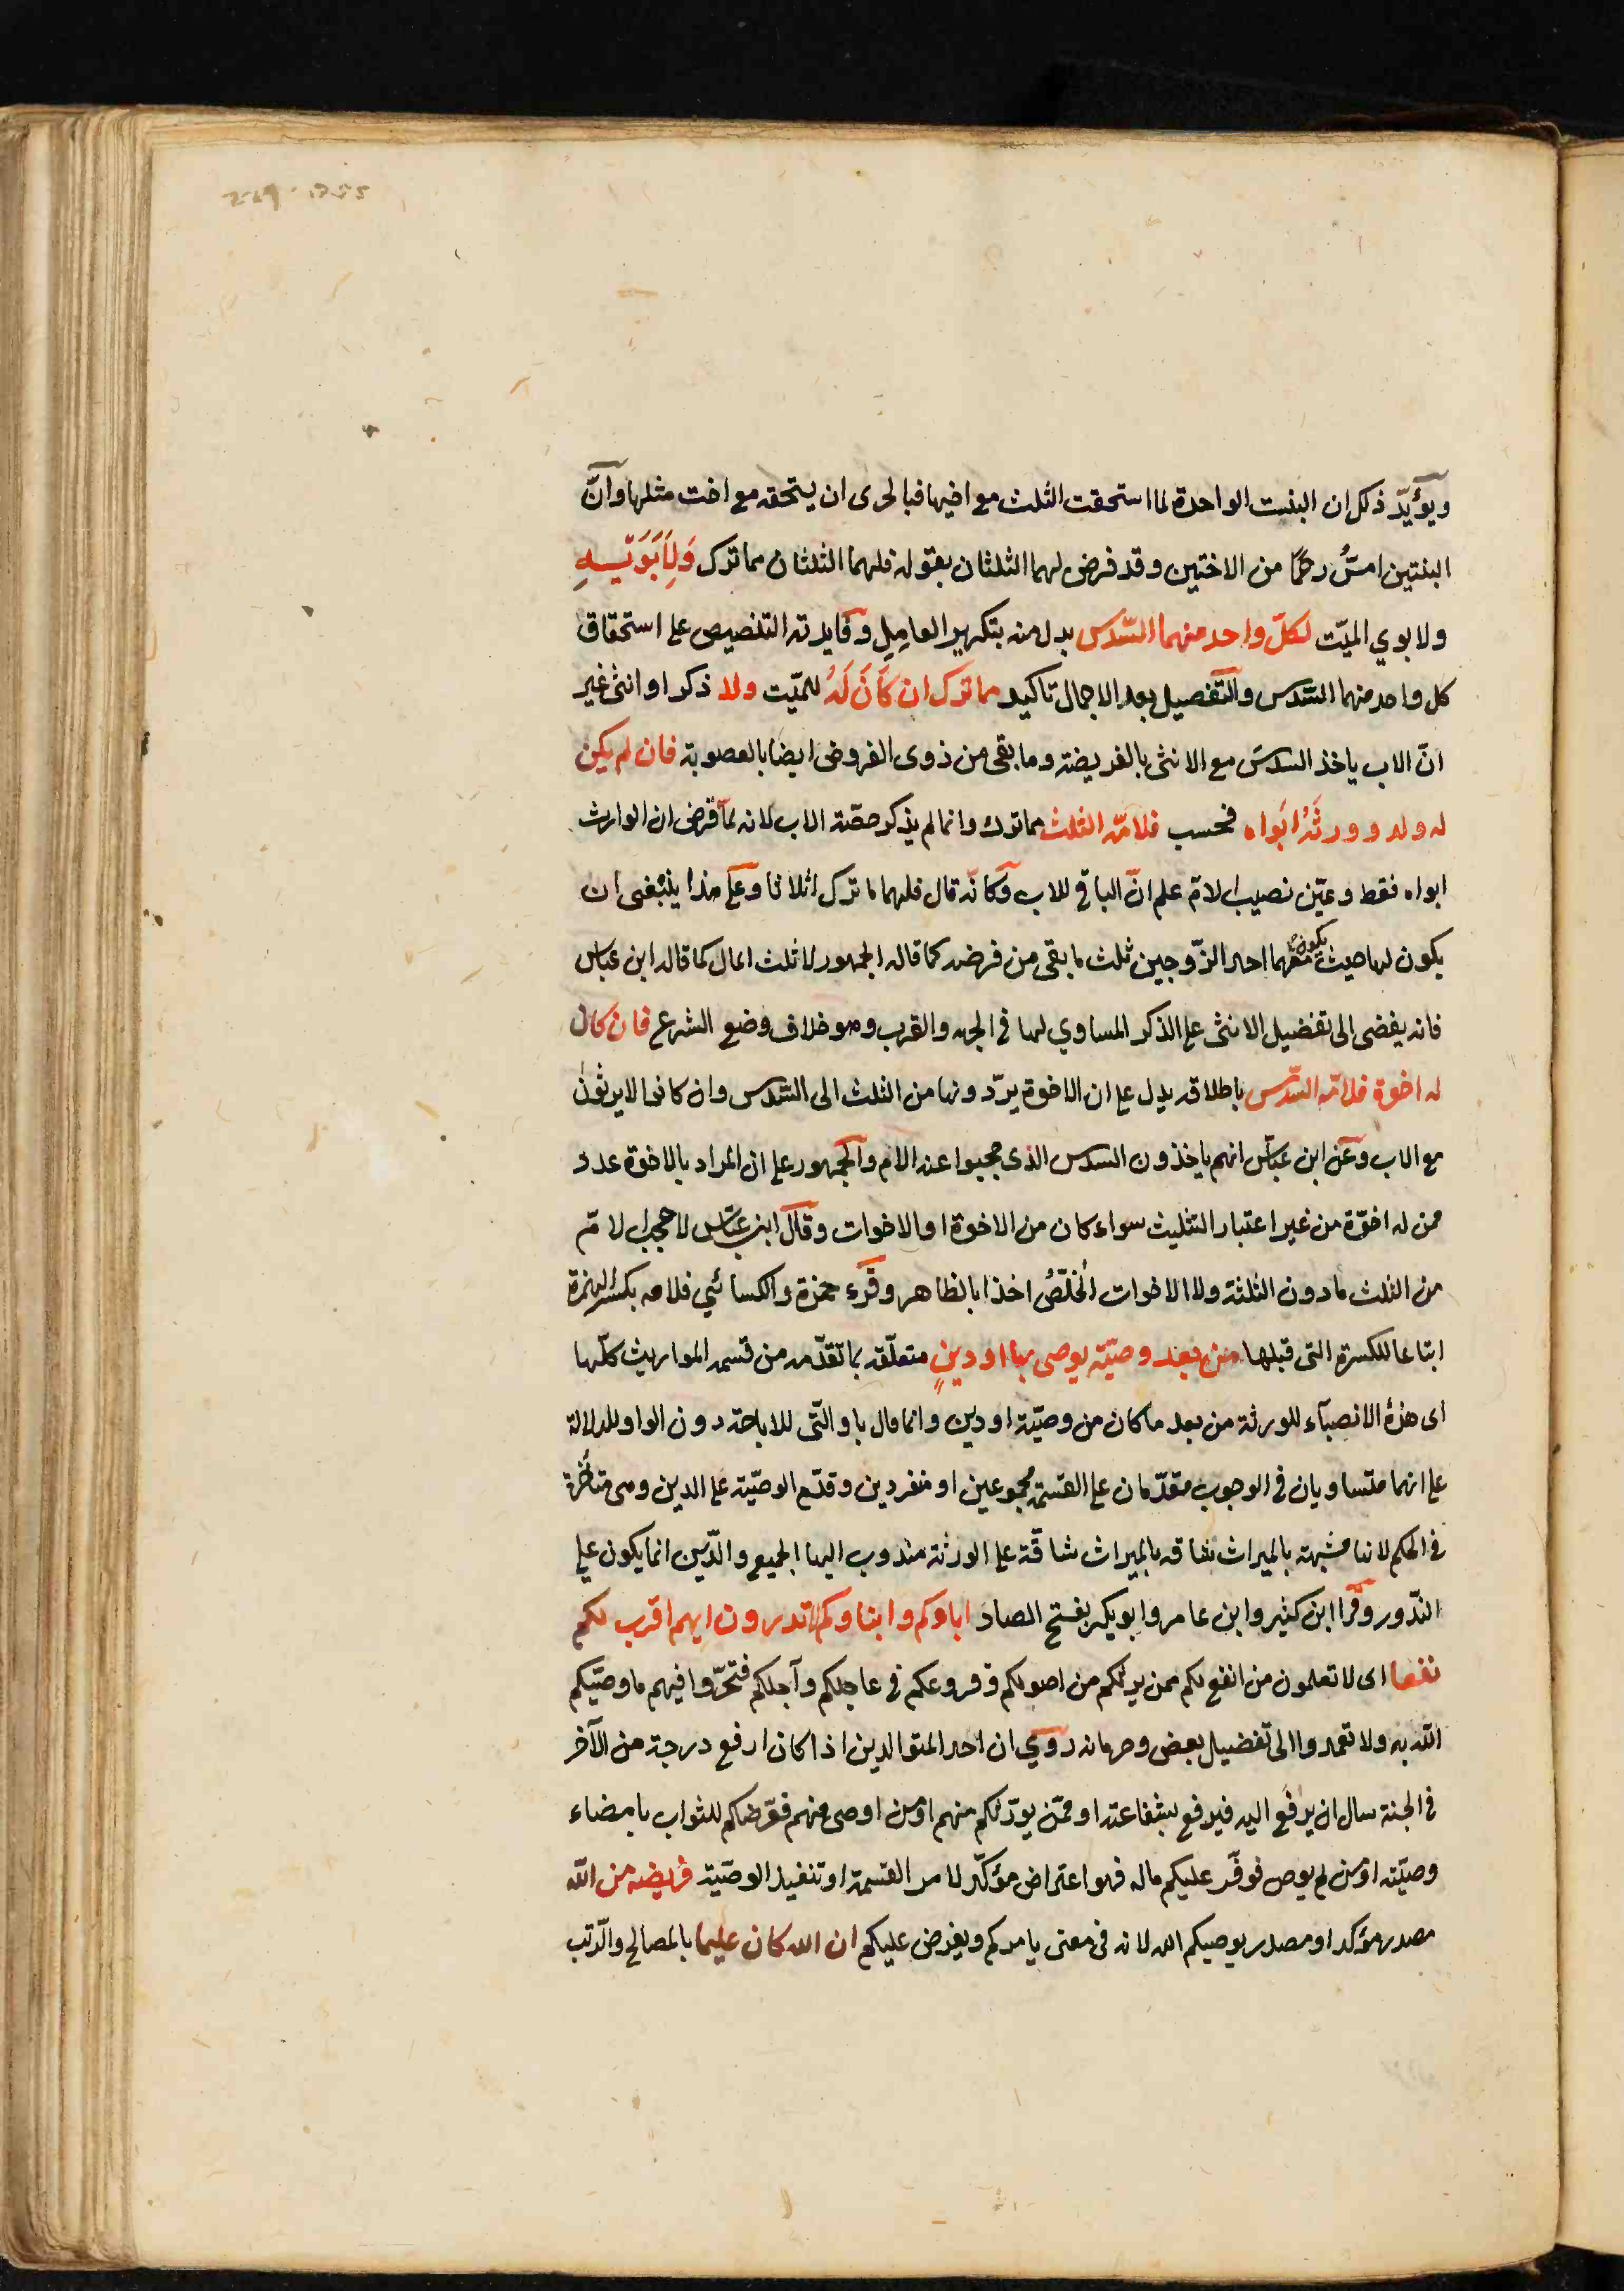 ويؤيّد ذلك ان البنت الواحدة لما استحقت الثلث مع اخيها فبالحرى ان يستحقه مع اخت مثلها وانّ
البنتين امسُّ رحمًا من الاختين وقد فرض لهما الثلثان بقوله فلهما الثلثان مما ترك وَلِأَبَوَيْهِ
ولابوي الميّت لكلّ واحد منهما السّدس بدل منه بتكرير العامِل وفايدته التنصيص على استحقاق
كل واحد منهما السّدس والتّفصيل بعد الاجمال تاكيد مما ترك ان كَانَ لَهُ للميّت ولد ذكر او انثى غير
انّ الاب ياخذ السدسَ مع الانثى بالفريضة وما بقى من ذوى الفروض ايضا بالعصوبة فان لم يكن
له ولد وورثَهُ ابَواه فحسب فلامّه الثلث مما ترك وانما لم يذكر حصّة الاب لانه لمّا فرض ان الوارث
ابواه فقط وعيّن نصيب الامّ علم انّ الباقي للاب وكانّه قال فلهما ما ترك اثلاثا وعلى هذا ينبغى ان
يكون لها حيث يكون معهما احد الزّوجين ثلث ما بقى من فرضه كما قاله الجمهور لا ثلث المال كما قاله ابن عباس
فانه يفضى الى تفضيل الانثى على الذكر المساوي لها في الجهه والقرب وهو خلاف وضع الشرع فان كان
له اخوة فلامّه السّدس باطلاقه يدل على ان الاخوة يردّونها من الثلث الى السّدس وان كانوا لا يرثون
مع الاب وعَن ابن عبّاس انهم ياخذون السدس الذى حجبوا عنه الام والجمهور على ان المراد بالاخوة عدد
ممن له اخوّة من غير اعتبار التثليث سواء كان من الاخوة او الاخوات وقال ابن عبّاس لا يحجب الامّ
من الثلث ما دون الثلثة ولا الاخوات الخلّصُ اخذا بالظاهر وقرء حمزة والكسائي فلامه بكسر الهمزة
اتباعا للكسرة التى قبلها من بعد وصيّة يوصى بها او دينٍ متعلّق بما تقدّمه من قسمه المواريث كلّها
اى هذهُ الانصبآء للورثة من بعد ما كان من وصيّة او دين وانما قال باو الّتى للاباحة دون الواو للدلالة
على انهما متساويان في الوجوب مقدّمان على القسمة مجموعين او منفردين وقدّم الوصيّة على الدين وهى متأخرة
في الحكم لانها مشبهة بالميراث شاقه بالميراث شاقّة على الورثة مندوب اليها الجميع والدّين انما يكون على
النّدور وقرا ابن كثير وابن عامر وابو بكر بفتح الصاد اباؤكم وابناوكم لا تدرون ايهم اقرب لكم
نفعا اى لا تعلمون من انفع لكم ممن يرثكم من اصولكم وفروعكم في عاجلكم وآجلكم فتحرّوا فيهم ما وصّيكم
اللّه به ولا تعمدوا الى تفضيل بعض وحرمانه رُوي ان احد المتوالدين اذا كان ارفع درجة من الآخر
في الجنة سال ان يرفع اليه فيرفع بشفاعته او ممّن يورّثكم منهم او مَن اوصى منهم فعرّضكم للثواب بامضاء
وصيّته او مَن لم يوص فوفّر عليكم ماله فهو اعتراض مؤكّد لامر القسمة او تنفيذ الوصيّة فريضه من اللّه
مصدر مؤكد او مصدر يوصيكم الله لانه في معنى يامركم ويفرض عليكم ان الله كان عليما بالمصالح والرّتب